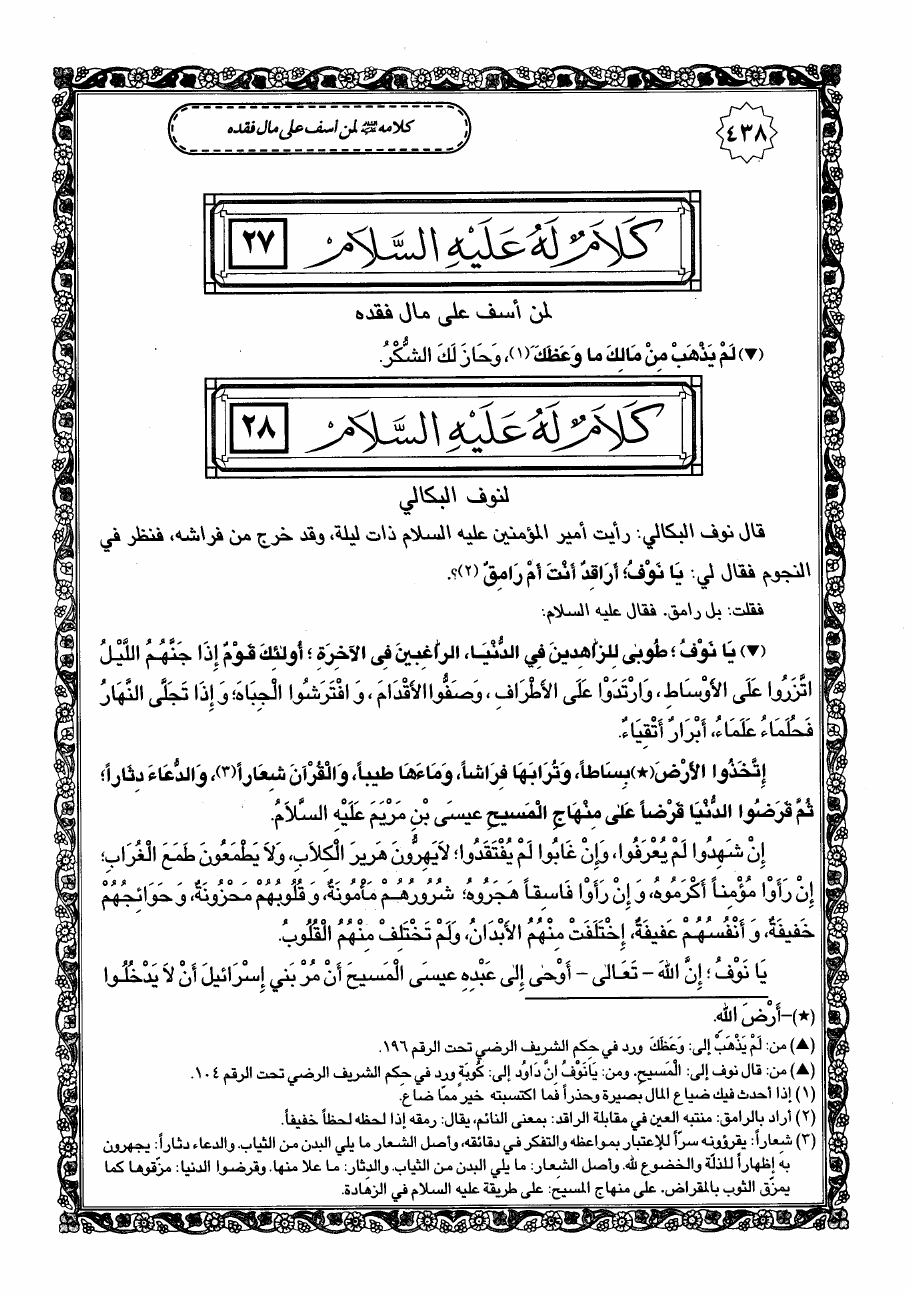 ٤٣٨
كلامه عليه السلام لمن أسف على مال فقده
كَلاَمٌ لَهُ عَلَيْهِ السَّلاَمُ
٢٧
لمن أسف على مال فقده
(▼) لَمْ يَذْهَبْ مِنْ مَالِكَ ما وَعَظَكَ (١)، وَحَازَ لَكَ الشُّكْرُ.
كَلاَمٌ لَهُ عَلَيْهِ السَّلاَمُ
٢٨
لنوف البكالي
قال نوف البكالي: رأيت أمير المؤمنين عليه السلام ذات ليلة، وقد خرج من فراشه، فنظر في
النجوم فقال لي: يَا نَوْفُ؛ أَرَاقِدٌ أَنْتَ أَمْ رَامِقٌ (٢)؟.
فقلت: بل رامق. فقال عليه السلام:
(▼) يَا نَوْفُ؛ طُوبى لِلزّاهِدينَ فِي الدُّنْيَا، الرّاغِبينَ فِي الآخِرَةِ؛ أُولئِكَ قَوْمٌ إِذَا جَنَّهُمُ اللَّيْلُ
اتَّزَرُوا عَلَى الأَوْسَاطِ، وَارْتَدَوْا عَلَى الأَطْرَافِ، وَصَفُّوا الأَقْدَامَ، وَ افْتَرَشُوا الْجِبَاهَ؛ وَ إِذَا تَجَلَّى النَّهَارُ
فَحُلَمَاءُ عُلَمَاءُ، أَبْرَارٌ أَتْقِيَاءٌ.
إِتَّخَذُوا الأَرْضَ (★) بِسَاطاً، وَتُرَابَهَا فِرَاشاً، وَمَاءَهَا طيباً، وَالْقُرْآنَ شِعَاراً (٣)، وَالدُّعَاءَ دِثَاراً؛
ثُمَّ قَرَضُوا الدُّنْيَا قَرْضاً عَلى مِنْهَاجِ الْمَسيحِ عيسَى بْنِ مَرْيَمَ عَلَيْهِ السَّلاَمُ.
إِنْ شَهِدُوا لَمْ يُعْرَفُوا، وَإِنْ غَابُوا لَمْ يُفْتَقَدُوا؛ لاَيَهِرُّونَ هَريرَ الْكِلاَبِ، وَلاَ يَطْمَعُونَ طَمَعَ الْغُرَابِ؛
إِنْ رَأَوْا مُؤْمِناً أَكْرَمُوهُ، وَ إِنْ رَأَوْا فَاسِقاً هَجَرُوهُ؛ شُرُورُهُمْ مَأْمُونَةٌ، وَ قُلُوبُهُمْ مَحْزُونَةٌ، وَ حَوَائِجُهُمْ
خَفيفَةٌ، وَ أَنْفُسُهُمْ عَفيفَةٌ، إِخْتَلَفَتْ مِنْهُمُ الأَبْدَانُ، وَلَمْ تَخْتَلِفْ مِنْهُمُ الْقُلُوبُ.
يَا نَوْفُ؛ إِنَّ اللّهَ - تَعَالى - أَوْحى إِلى عَبْدِهِ عيسَى الْمَسيحِ أَنْ مُرْ بَني إِسْرَائيلَ أَنْ لاَ يَدْخُلُوا
(★)-أَرْضَ اللّهِ.
(▲) من: لَمْ يَذْهَبْ إلى: وَعَظَكَ ورد في حكم الشريف الرضي تحت الرقم ١٩٦.
(▲) من: قال نوف إلى: الْمَسيحِ. ومن: يَانَوْفُ إِنَّ دَاوُدَ إلى: كُوبَةٍ ورد في حكم الشريف الرضي تحت الرقم ١٠٤.
(١) إذا أحدث فيك ضياع المال بصيرة وحذراً فما اكتسبته خير ممّا ضاع.
(٢) أراد بالرامق: منتبه العين في مقابلة الراقد: بمعنى النائم، يقال: رمقه إذا لحظه لحظاً خفيفاً.
(٣) شعاراً: يقرؤونه سراً للإعتبار بمواعظه والتفكر في دقائقه، وأصل الشعار ما يلي البدن من الثياب. والدعاء دثاراً: يجهرون
به إظهاراً للذلّة والخضوع لله. وأصل الشعار: ما يلي البدن من الثياب. والدثار: ما علا منها. وقرضوا الدنيا: مزّقوها كما
يمزّق الثوب بالمقراض. على منهاج المسيح: على طريقة عليه السلام في الزهادة.